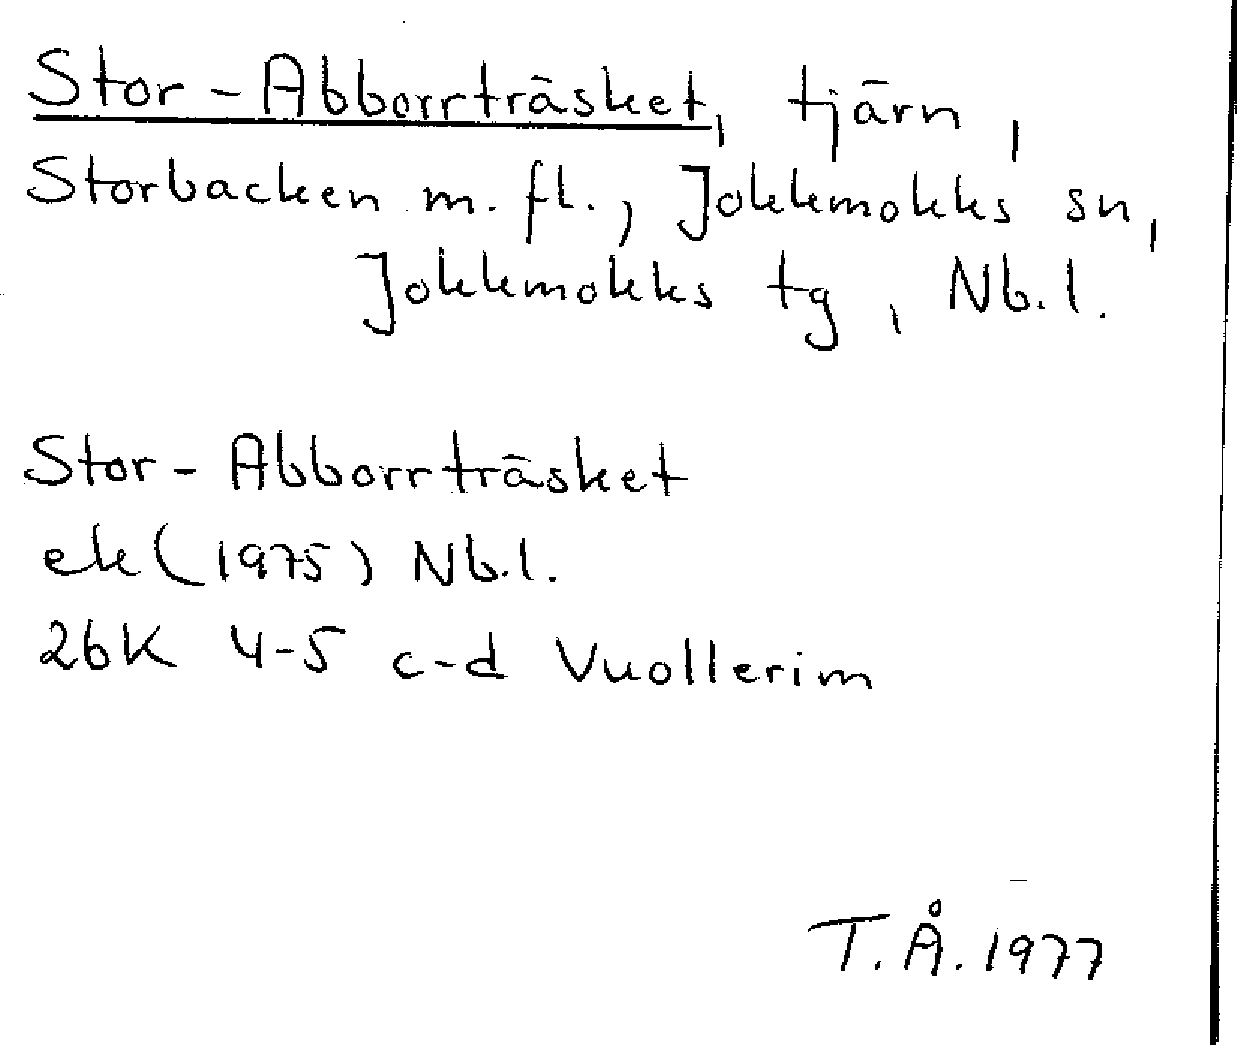 Stor-Abborrträsket, tjärn,
Storbacken m. fl., Jokkmokks sn,
Jokkmokks tg, Nb. l.
Stor-Abborrträsket
ek (1975) Nb. l.
26K 4-5 c-d Vuollerim
T. Å. 1977